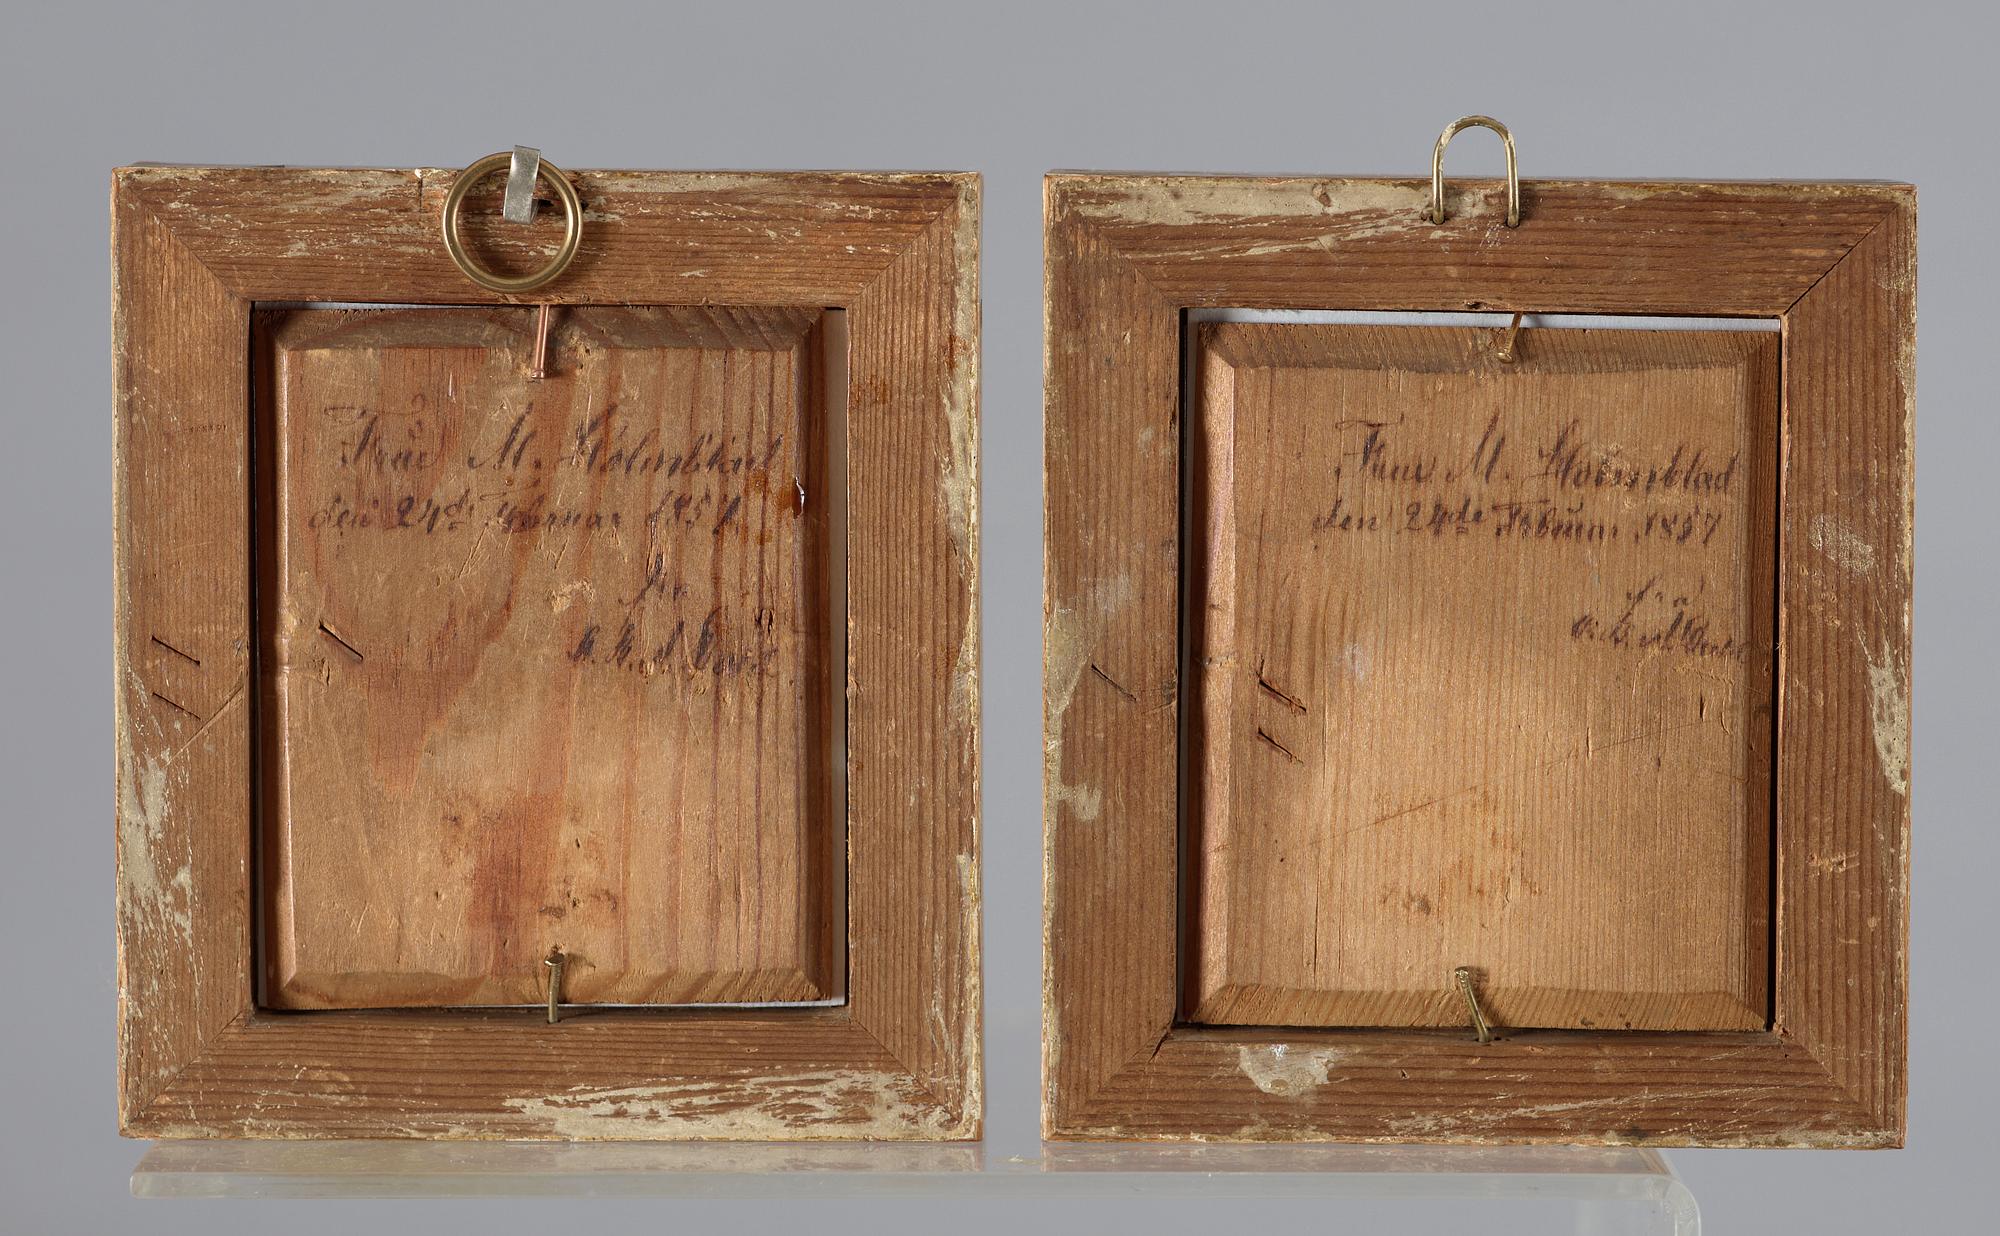 Frue M. Holmblad
den 24de Februar 1857
fra
Frue M. Holmblad
den 24de Februar 1857
fra